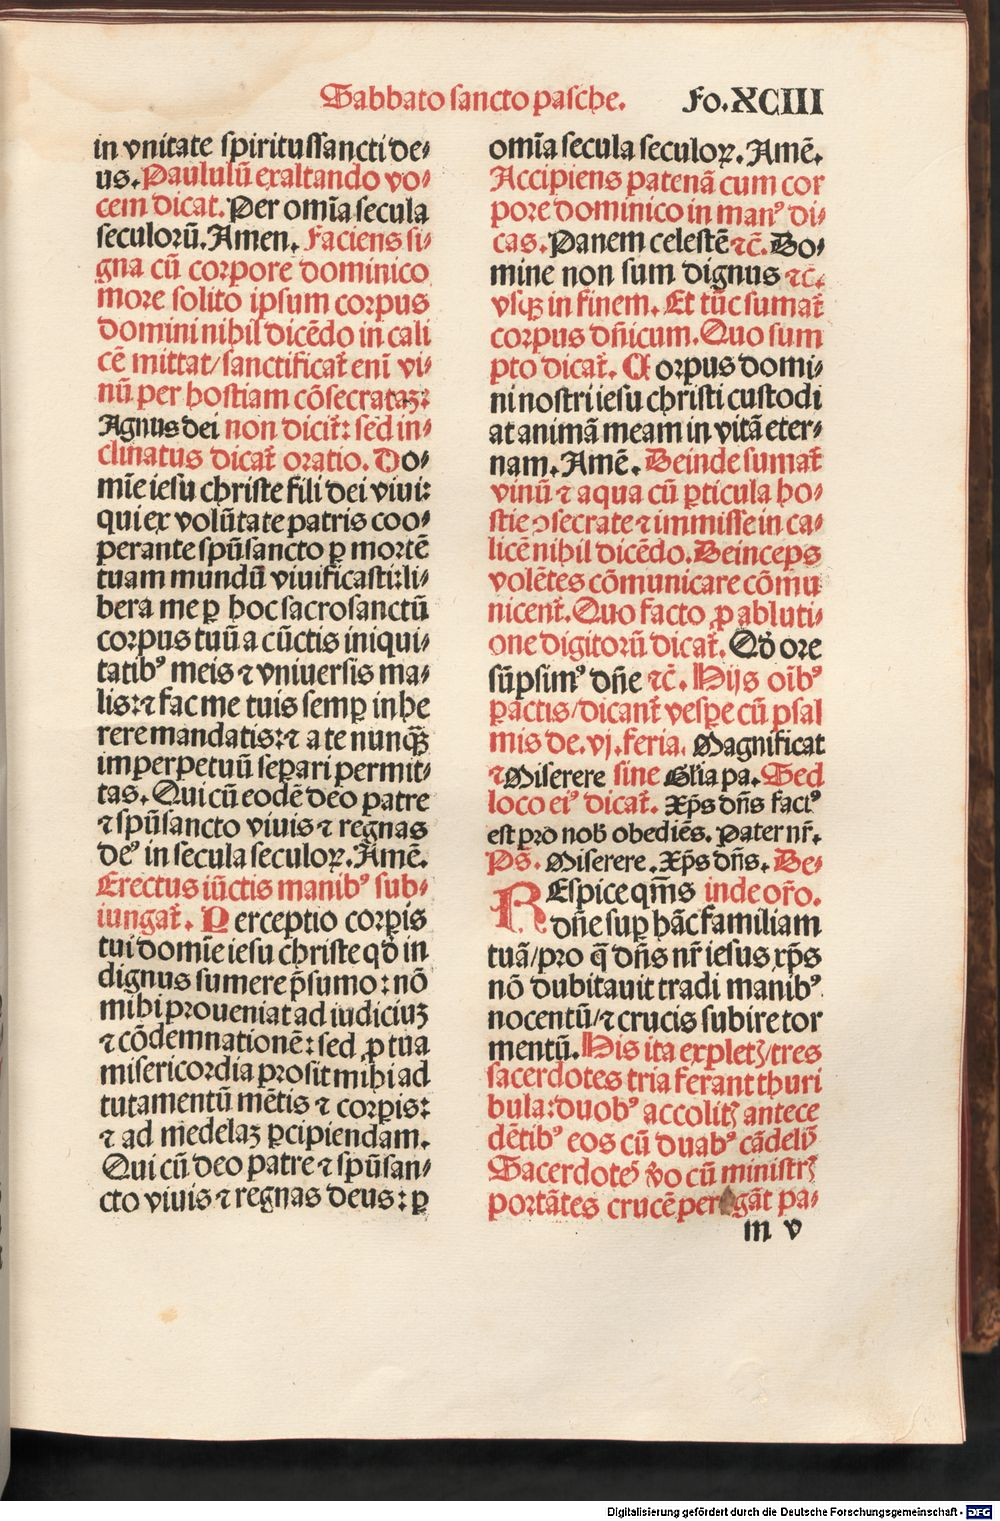 Sabbato sancto pasche. Fo.XCIII
in vnitate spiritussancti de⸗
us. Paululū exaltando vo⸗
cem dicat. Per om̄ia secula
seculorū. Amen. Faciens si⸗
gna cū corpore dominico
more solito ipsum corpus
domini nihil dicēdo in cali
cē mittat/sanctificat̄ enī vi⸗
nū per hostiam cōsecrataꝫ:
Agnus dei non dicit̄: sed in⸗
clinatus dicat̄ oratio. Do⸗
mīe iesu christe fili dei viui:
qui ex volūtate patris coo⸗
perante spūsancto ꝑ mortē
tuam mundū viuificasti: li⸗
bera me ꝑ hoc sacrosanctū
corpus tuū a cūctis iniqui⸗
tatibꝰ meis ⁊ vniuersis ma⸗
lis: ⁊ fac me tuis semꝑ inhe
rere mandatis: ⁊ a te nunqꝫ̄
imperpetuū seꝑari permit⸗
tas. Qui cū eodē deo patre
⁊ spūsancto viuis ⁊ regnas
deꝰ in secula seculoꝝ. Amē.
Erectus iūctis manibꝰ sub⸗
iungat̄. Perceptio corꝑis
tui domīe iesu christe qd̄ in
dignus sumere p̄sumo: nō
mihi proueniat ad iudiciuꝫ
⁊ cōdemnationē: sed ꝓ tua
misericordia prosit mihi ad
tutamentū mētis ⁊ corꝑis:
⁊ ad medelaꝫ ꝑcipiendam.
Qui cū deo patre ⁊ spūsan⸗
cto viuis ⁊ regnas deus: ꝑ
om̄ia secula seculoꝝ. Amē.
Accipiens patenā cum cor
pore dominico in manꝰ di⸗
cas. Panem celestē ⁊c̄. Do⸗
mine non sum dignus ⁊c̄.
vsqꝫ in finem. Et tūc sumat̄
corpus dn̄icum. Quo sum
pto dicat̄. Corpus domi⸗
ni nostri iesu christi custodi
at animā meam in vitā eter⸗
nam. Amē. Deinde sumat̄
vinū ⁊ aqua cū ꝑticula ho⸗
stie ↄsecrate ⁊ immisse in ca⸗
licē nihil dicēdo. Deinceps
volētes cōmunicare cōmu
nicent̄. Quo facto ꝓ abluti⸗
one digitorū dicat̄. Qd̄ ore
sūpsimꝰ dn̄e ⁊c̄. Hijs oībꝰ
ꝑactis/dicant̄ vesꝑe cū psal
mis de. vj. feria. Magnificat
⁊ Miserere sine Gl̄ia pa. Sed
loco eiꝰ dicat̄. Xp̄s dn̄s factꝰ
est pro nob̄ obediēs. Pater nr̄.
Ps̄. Miserere. Xp̄s dn̄s. De⸗
inde or̄o.
REspice qm̄s
dn̄e suꝑ hāc familiam
tuā/pro q̄ dn̄s nr̄ iesus xp̄s
nō dubitauit tradi manibꝰ
nocentū/⁊ crucis subire tor
mentū. His ita expletꝭ/tres
sacerdotes tria ferant thuri
bula: duobꝰ accolitꝭ antece
dētibꝰ eos cū duabꝰ cādelis
Sacerdotes v̄o cū ministrꝭ
portātes crucē per gāt pa⸗
m v
Digitalisierung gefördert durch die Deutsche Forschungsgemeinschaft - DFG